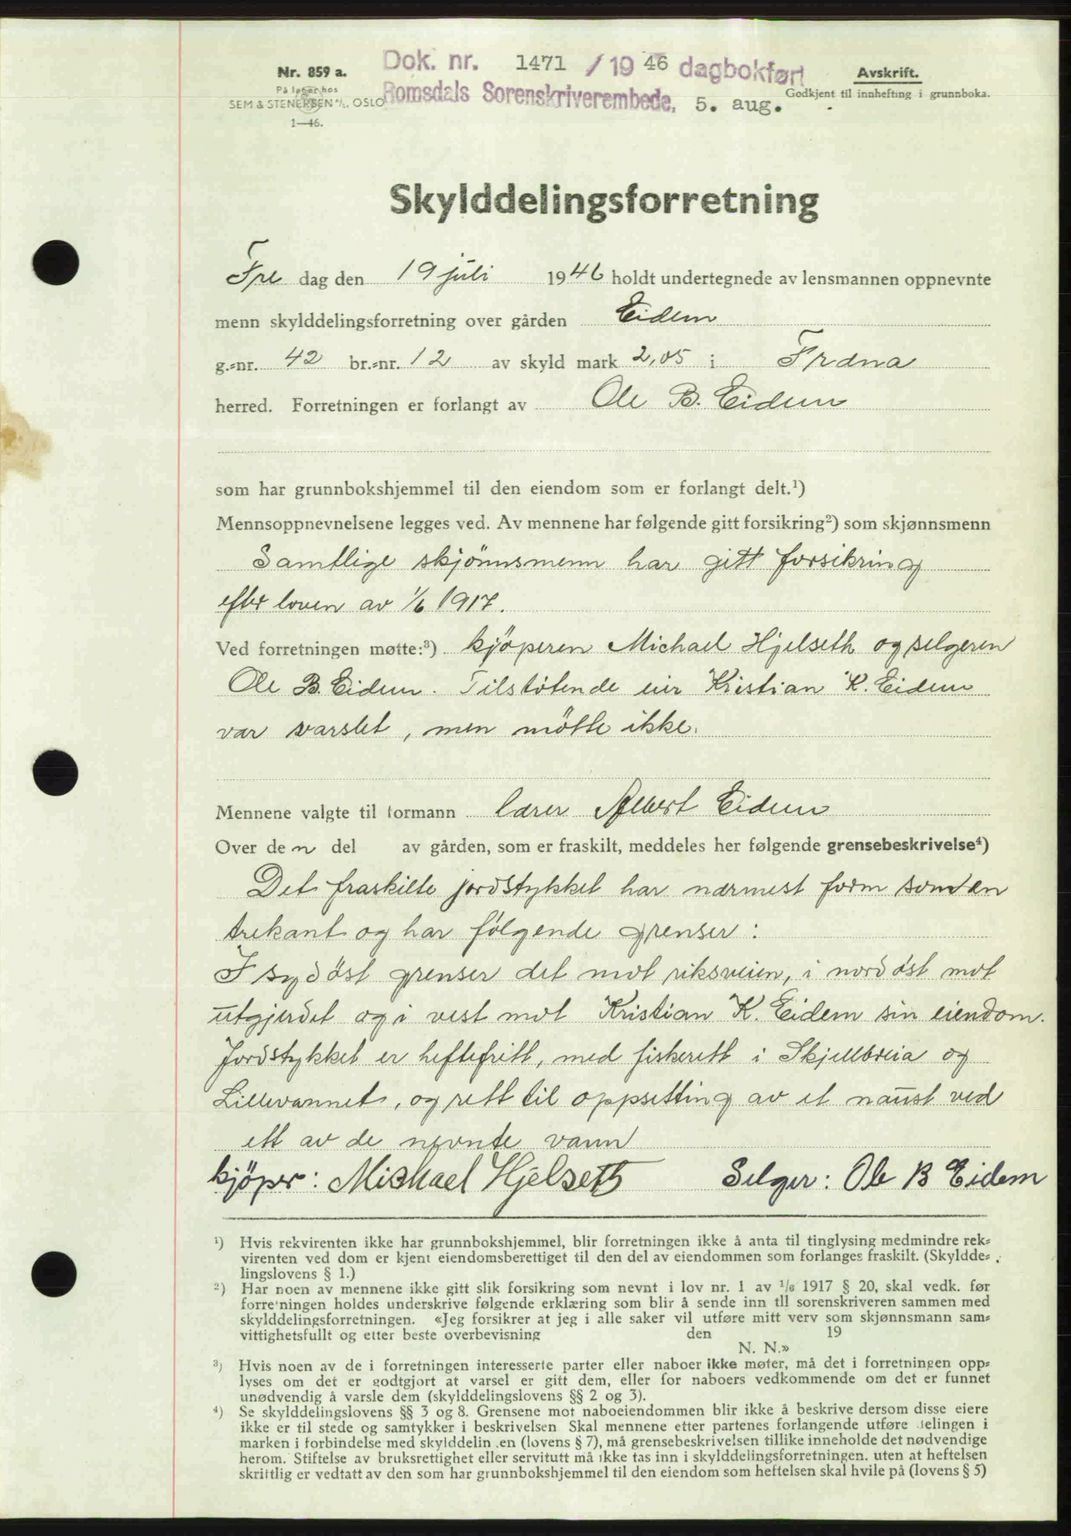 Nr. 859 a.
På lager hos
SEM & STENERSEN A/S. OSLO
1—46.
Dok. nr. 1471 / 19 46 dagbokført
Romsdals Sorenskriverembede, 5. aug.
Avskrift.
Godkjent til innhefting i grunnboka.
Skylddelingsforretning
Fre dag den 19 juli 1946 holdt undertegnede av lensmannen oppnevnte
menn skylddelingsforretning over gården Eidem
g.-nr. 42 br.-nr. 12 av skyld mark 2,05 i Fræna
herred. Forretningen er forlangt av Ole B. Eidem
som har grunnbokshjemmel til den eiendom som er forlangt delt.¹)
Mennsoppnevnelsene legges ved. Av mennene har følgende gitt forsikring²) som skjønnsmenn
Samtlige skjönnsmenn har gitt forsikring
efter loven av 1/6 1917.
Ved forretningen møtte:³) kjöperen Michael Hjelseth og selgeren
Ole B. Eidem. Tilstötende eier Kristian K. Eidem
var varslet, men mötte ikke.
Mennene valgte til formann lærer Albert Eidem
Over den del av gården, som er fraskilt, meddeles her følgende grensebeskrivelse⁴)
Det fraskilte jordstykket har nærmest form som en
trekant og har fölgende grenser:
I sydöst grenser det mot riksveien, i nordöst mot
utgjerdet og i vest mot Kristian K. Eidem sin eiendom.
Jordstykket er heftefritt, med fiskerett i Skjellbreia og
Lillevannet, og rett til oppsetting av et naust ved
ett av de nevnte vann
kjöper: Michael Hjelseth Selger: Ole B Eidem
¹) Hvis rekvirenten ikke har grunnbokshjemmel, blir forretningen ikke å anta til tinglysing medmindre rek-
virenten ved dom er kjent eiendomsberettiget til den del av eiendommen som forlanges fraskilt. (Skyldde-
lingslovens § 1.)
²) Har noen av mennene ikke gitt slik forsikring som nevnt i lov nr. 1 av 1/6 1917 § 20, skal vedk. før
forretningen holdes underskrive følgende erklæring som blir å sende inn til sorenskriveren sammen med
skylddelingsforretningen. «Jeg forsikrer at jeg i alle saker vil utføre mitt verv som skjønnsmann sam-
vittighetsfullt og etter beste overbevisning den 19
N. N.»
³) Hvis noen av de i forretningen interesserte parter eller naboer ikke møter, må det i forretningen opp-
lyses om det er godtgjort at varsel er gitt dem, eller for naboers vedkommende om det er funnet
unødvendig å varsle dem (skylddelingslovens §§ 2 og 3).
⁴) Se skylddelingslovens §§ 3 og 8. Grensene mot naboeiendommen blir ikke å beskrive dersom disse eiere
ikke er til stede og samtykker i beskrivelsen Skal mennene etter partenes forlangende utføre delingen i
marken i forbindelse med skylddelingen (lovens § 7), må grensebeskrivelsen tillike inneholde det nødvendige
herom. Stiftelse av bruksrettighet eller servitutt må ikke tas inn i skylddelingsforretningen. uten at heftelsen
skriftlig er vedtatt av den som har grunnbokshjemmel til den eiendom som heftelsen skal hvile på (lovens § 5)